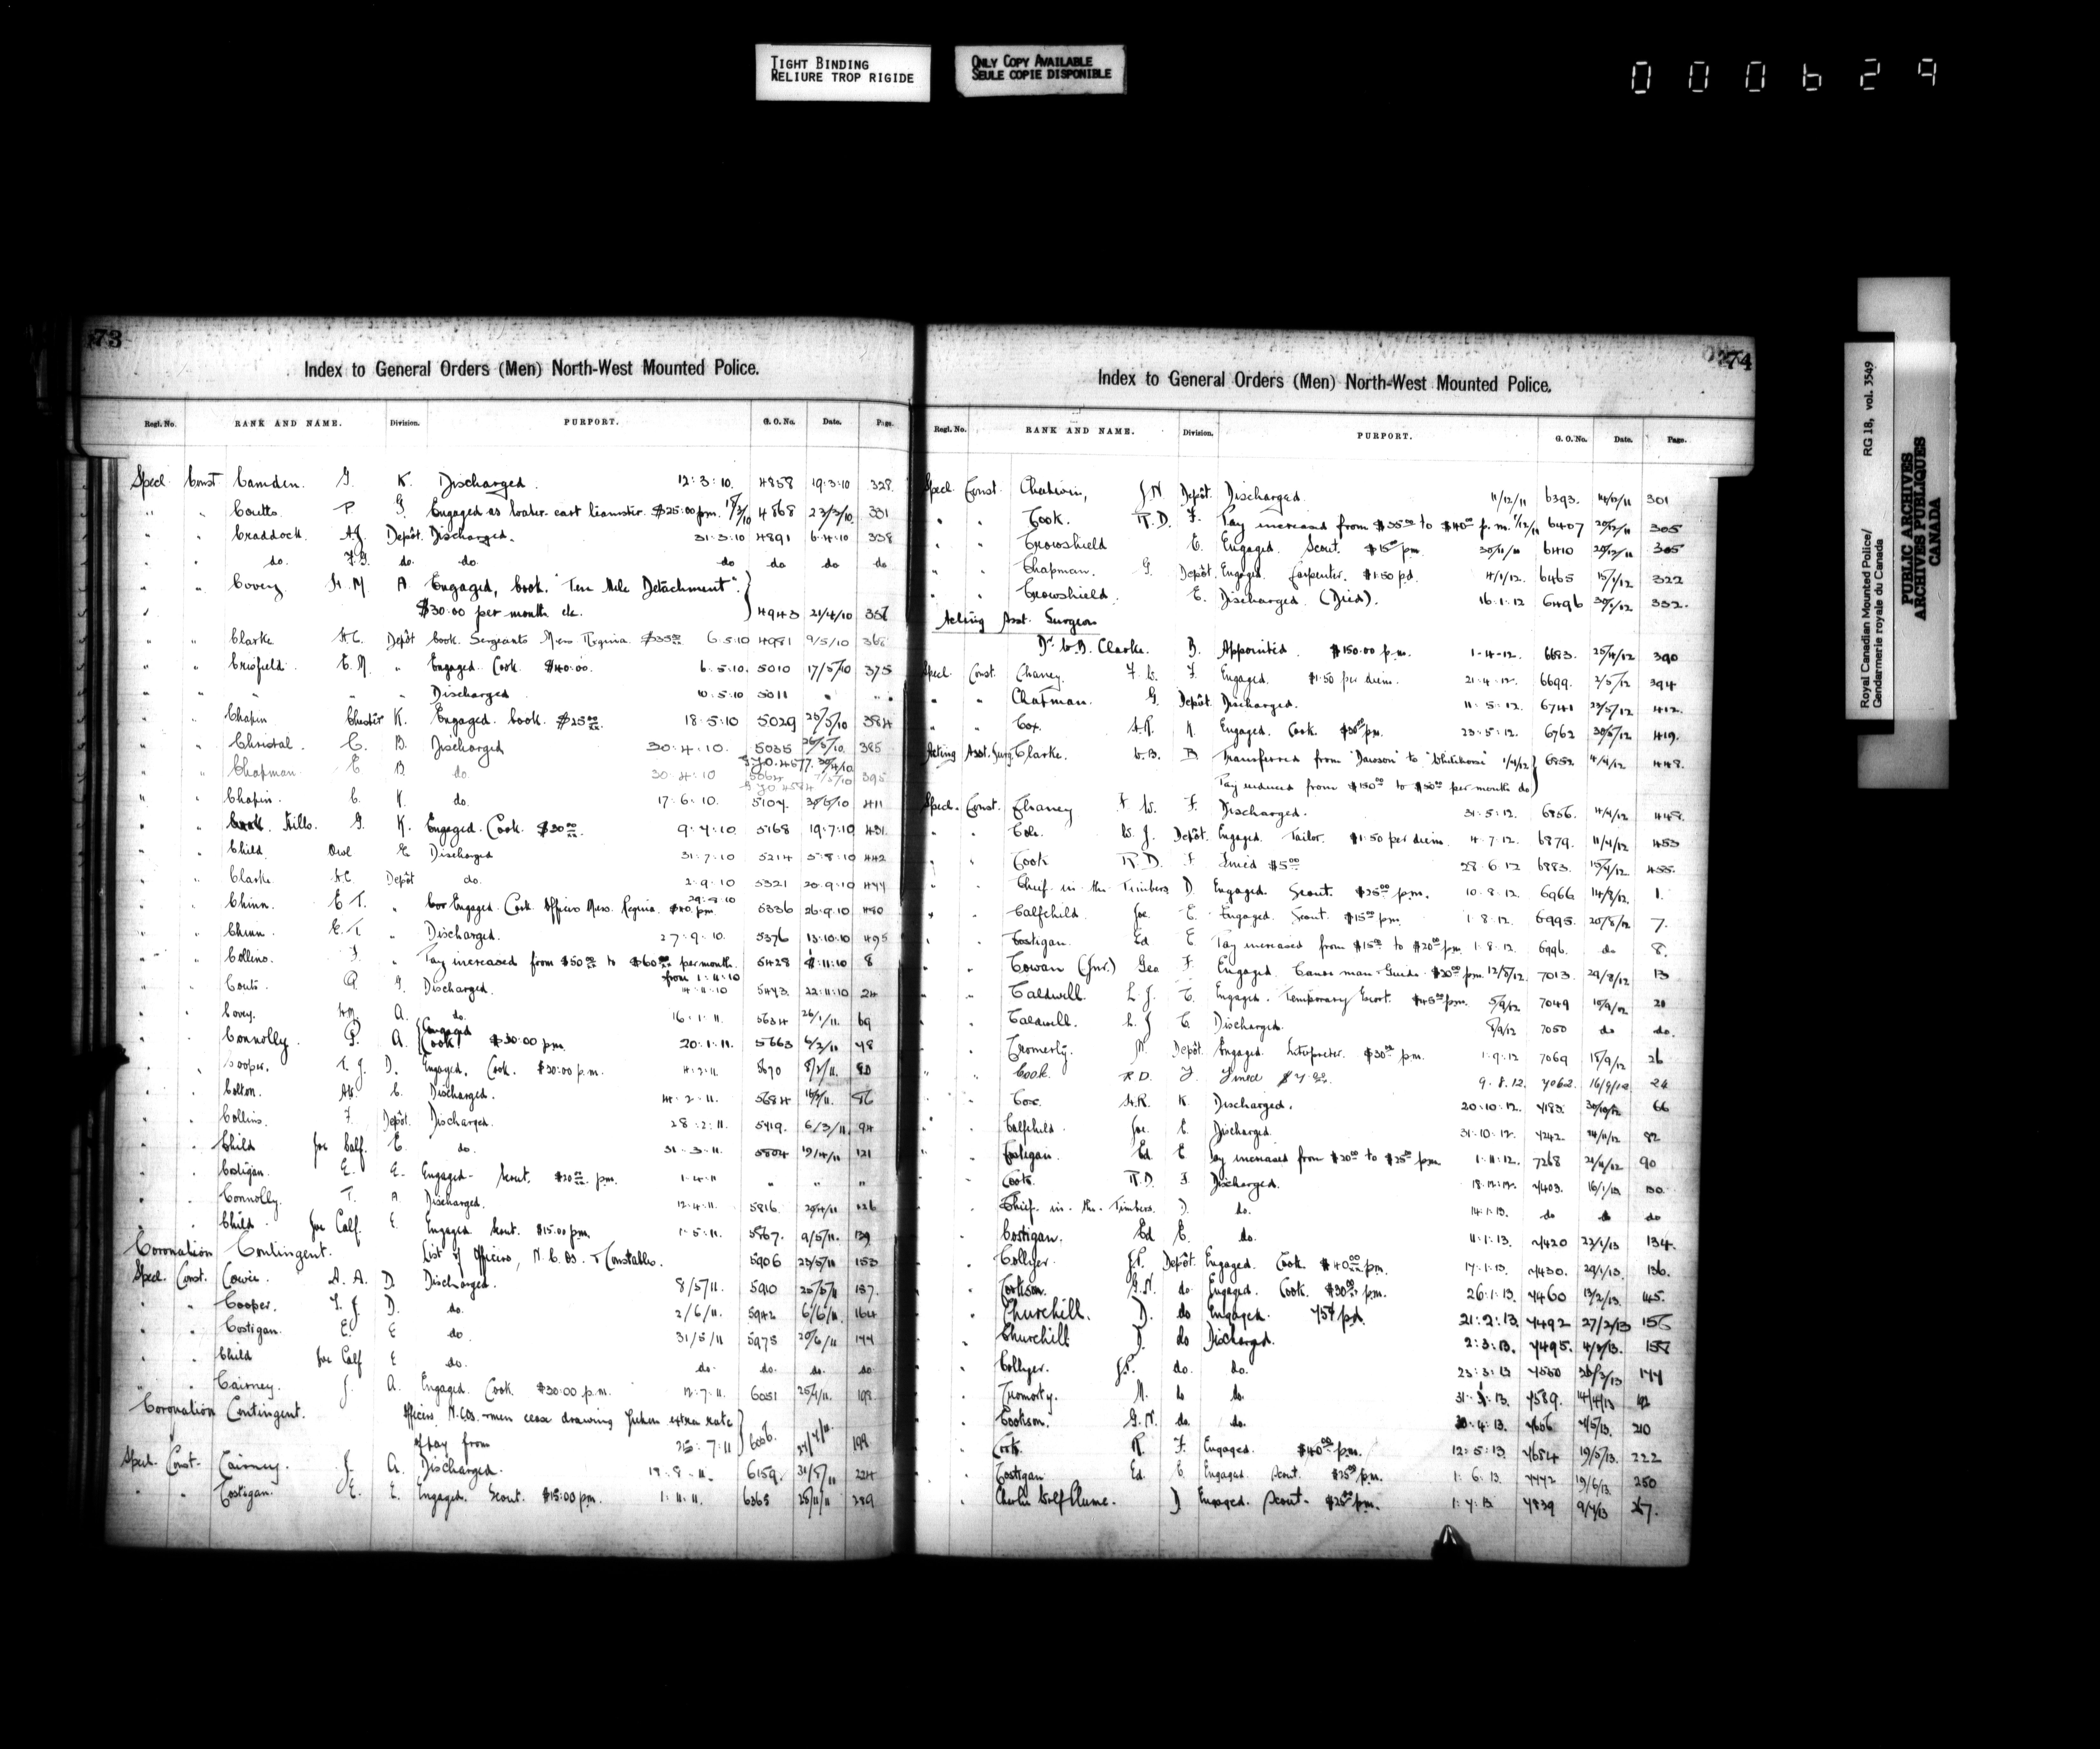 TIGHT BINDING
RELIURE TROP RIGIDE
ONLY COPY AVAILABLE
SEULE COPIE DISPONIBLE
000629
73
Index to General Orders (Men) North-West Mounted Police.
Regl. No. RANK AND NAME. Division. PURPORT. G. O. No. Date. Page.
Specl Const Camden. G. K. Discharged. 12:3:10. 4858 19:3:10 328.
" " Coutts P G. Engaged as water-cart teamster. $25:00 pm. 18/3/10 4868 23/3/10. 331
" " Craddock. A.J. Depôt. Discharged. 31:3:10 4891 6:4:10 338
" " do. F.G. do. do. do do do do
" " Covey H.M A Engaged, Cook. "Ten Mile Detachment".
$30:00 per month etc. 4943 21/4/10 357
" " Clarke H.C. Depôt Cook. Sergeants Mess Regina. $35.00 6:5:10 4981 9/5/10
" " Crisfield. E.M. " Engaged Cook $40:00. 6:5:10. 5010 17/5/10 375
" " " " " Discharged 10:5:10 5011 " "
" " Chapin Chester K. Engaged Cook. $25.00 18:5:10 5029 25/5/10 384
" " Christal. C. B. Discharged 30:4:10. 5035 26/5/10. 385
" " Chapman E B. do. 30:4:10 395
" " Chapin. C. K. do. 17:6:10. 5107. 30/6/10 411
" " Hills. G. K. Engaged. Cook. $30.00 9:7:10 5168 19:7:10 431.
" " Child. Owl E Discharged 31:7:10 5214 5:8:10 442
" " Clarke H.C Depôt do. 2:9:10 5321 20:9:10 477
" " Chinn. E T. " Engaged Cook Officers Mess. Regina. $40. pm. 5336 26:9:10 480
" " Chinn. E.T. " Discharged. 27:9:10. 5376 13:10:10 495
" " Collins. F. " Pay increased from $50.00 to $60.00 per month. from 1:11:10 5428 :11:10 8
" " Couts G. Discharged. 5473. 22:11:10 24
" " Covey. HM. A. do. 16:1:11. 5634 26/1/11. 69
" " Connolly. A. Engaged Cook $30:00 pm. 20:1:11. 5663 6/2/11 78
" " Cooper. T. J. D. Engaged. Cook. $30:00 p.m. 4:2:11. 5670 8/2/11. 80
" " Colton. C. Discharged. 4:2:11. 5684 86
" " Collins. F. Depôt. Discharged. 28:2:11. 5719. 6/3/11. 94
" " Child Joe Calf. E. do. 31:3:11. 5804 19/4/11 121
" " Costigan. E. E. Engaged- Scout. $20.00 pm. 1:4:11 " " "
" " Connolly. T. A. Discharged. 12:4:11. 5816. 126
" " Child Joe Calf. E. Engaged Scout. $15.00 pm 1:5:11. 5867. 9/5/11. 139
Coronation Contingent. List of Officers, N.C.Os. & Constables. 5906 23/5/11 153
Specl. Const. Cowie. A. A. D. Discharged. 8/5/11. 5910 25/5/11 157.
" " Cooper. T. J D. do. 2/6/11. 5942 6/6/11. 164
" " Costigan. E. E do. 31/5/11 5975 20/6/11 177
" " Child Joe Calf E do. do. do. do. do.
" " Cairney. J. A. Engaged Cook $30:00 p.m. 12:7:11. 6051 25/7/11. 198
Coronation Contingent. Officers N.C.Os. & men cease drawing Yukon extra rate
of pay from 25:7:11 6056. 199
Specl. Const. Cairney. J. A. Discharged. 19:8:11. 6159. 31/8/11 224
" " Costigan. E. E. Engaged. Scout. $15:00 pm. 1:11:11. 6365 25/11/11 289
74
Index to General Orders (Men) North-West Mounted Police.
Regl. No. RANK AND NAME. Division. PURPORT. G. O. No. Date. Page.
Specl Const. J.N. Depôt. Discharged. 11/12/11 6393. 14/12/11 301
" " Cook. R.D. F. Pay increased from $35.00 to $40.00 p.m. 1/12/11 6407 20/12/11 305
" " Crowshield E. Engaged. Scout. $15.00 pm. 30/11/11 6410 20/12/11 305
" " Chapman. G. Depôt. Engaged. Carpenter. $1:50 pd. 4/1/12. 6465 15/1/12 322
" " Crowshield. E. Discharged (Died). 16:1:12 6496 30/1/12 332.
Acting Asst. Surgeon
Dr. W.B. Clarke. B. Appointed. $150.00 p.m. 1-4-12. 6683. 25/4/12 390
Specl Const. Chaney. F. W. F. Engaged. $1.50 per diem. 21:4:12. 6699. 2/5/12 394
" " Chapman. G. Depôt. Discharged. 11:5:12. 6741 23/5/12 412.
" " Cox. H.R. K. Engaged. Cook. $30.00 pm. 23:5:12. 6762 30/5/12 419.
Acting Asst. Surg. Clarke. W.B. B Transferred from "Dawson" to "Whitehorse" 1/7/12 6852 4/7/12 448.
Pay reduced from $150.00 to $50.00 per month do
Specl. Const. Chaney F. W. F. Discharged. 31:5:12. 6856. 4/7/12 449.
" " Cole. W. J. Depôt. Engaged. Tailor. $1:50 per diem. 4:7:12. 6879. 11/7/12 453
" " Cook R. D. F Fined $5.00 28:6:12 6883. 455.
" " Chief in the Timbers D. Engaged. Scout. $25.00 p.m. 10:8:12. 6966 14/8/12. 1.
" " Calfchild. Joe. E. Engaged. Scout. $15.00 pm. 1:8:12. 6995. 20/8/12 7.
" " Costigan. Ed. E Pay increased from $15.00 to $20.00 pm. 1:8:12. 6996. do 8.
" " Cowan (Jnr.) Geo F. Engaged. Canoe man & Guide. $30.00 pm. 12/8/12. 7013. 29/8/12 13
" " Caldwell. L. J. C. Engaged. Temporary Escort. $45.00 pm. 5/9/12. 7049 10/9/12 20
" " Caldwell. L. J C. Discharged. 8/9/12 7050 do do.
" " M. Depôt. Engaged. Interpreter. $30.00 p.m. 1:9:12 7069 18/9/12 26
" " Cook. R.D. F. Fined $7.00. 9.8.12. 7062. 16/9/12 24
" " Cox. H.R. K. Discharged. 20:10:12. 7183. 30/10/12 66
" " Calfchild. Joe. E. Discharged. 31:10:12. 7242. 82
" " Costigan. Ed E Pay increased from $20.00 to $25.00 pm. 1:11:12. 7268 90
" " Cook. R.D. F Discharged. 18:12:12. 7403. 16/1/13. 130.
" " Chief in the Timbers. D. do. 14:1:13. do do do
" " Costigan. Ed E. do. 11:1:13. 7420 22/1/13 134.
" " Collyer. J.P. Depôt. Engaged. Cook $40.00 pm. 17:1:13. 7430. 29/1/13. 136.
" " Cookson. G.N. do. Engaged. Cook. $30.00 p.m. 26:1:13. 7460 13/2/13. 145.
" " Churchill. D. do Engaged. 75¢ pd. 21:2:13. 7492 27/2/13 156
" " Churchill D. do Discharged. 2:3:13. 7495. 4/3/13. 158
" " Collyer. J.P. do. do. 23:3:13 177
" " M. do do. 31:3:13. 7589. 14/4/13
" " Cookson. G.N. do. do. 30:4:13. 7656 7/5/13. 210
" " Cook. R. F. Engaged. $40.00 p.m. 12:5:13 7684 19/5/13. 222
" " Costigan Ed. E. Engaged. Scout. $25.00 p.m. 1:6:13. 7772 19/6/13. 250
" " Charlie Wolf Plume. D Engaged. Scout. $25.00 p.m. 1:7:13 7839 9/7/13 267.
Royal Canadian Mounted Police/ RG 18, vol. 3549
Gendarmerie royale du Canada
PUBLIC ARCHIVES
ARCHIVES PUBLIQUES
CANADA